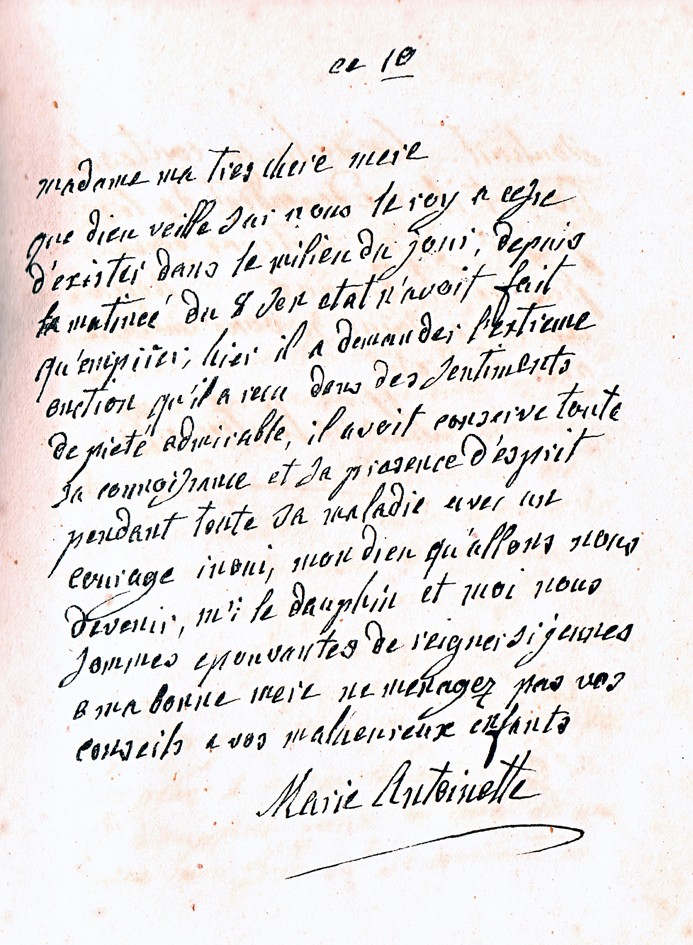 ce 10
madame ma tres chere mere
que dieu veille sur nous le roy a cessé
d'exister dans le milieu du jour, depuis
la matineé du 8 son etat n'avoit fait
qu'empirer, hier il a demander l'extreme
onction qu'il a recu dans des sentiments
de pieté admirable, il avoit conserve toute
sa connoissance et sa presence d'esprit
pendant toute sa maladie avec un
courage inoui, mon dieu qu'allons nous
devenir, mr le dauphin et moi nous
sommes epouvantés de reigner si jeunes
o ma bonne mere ne menagez pas vos
conseils a vos malheureux enfants
Marie Antoinette